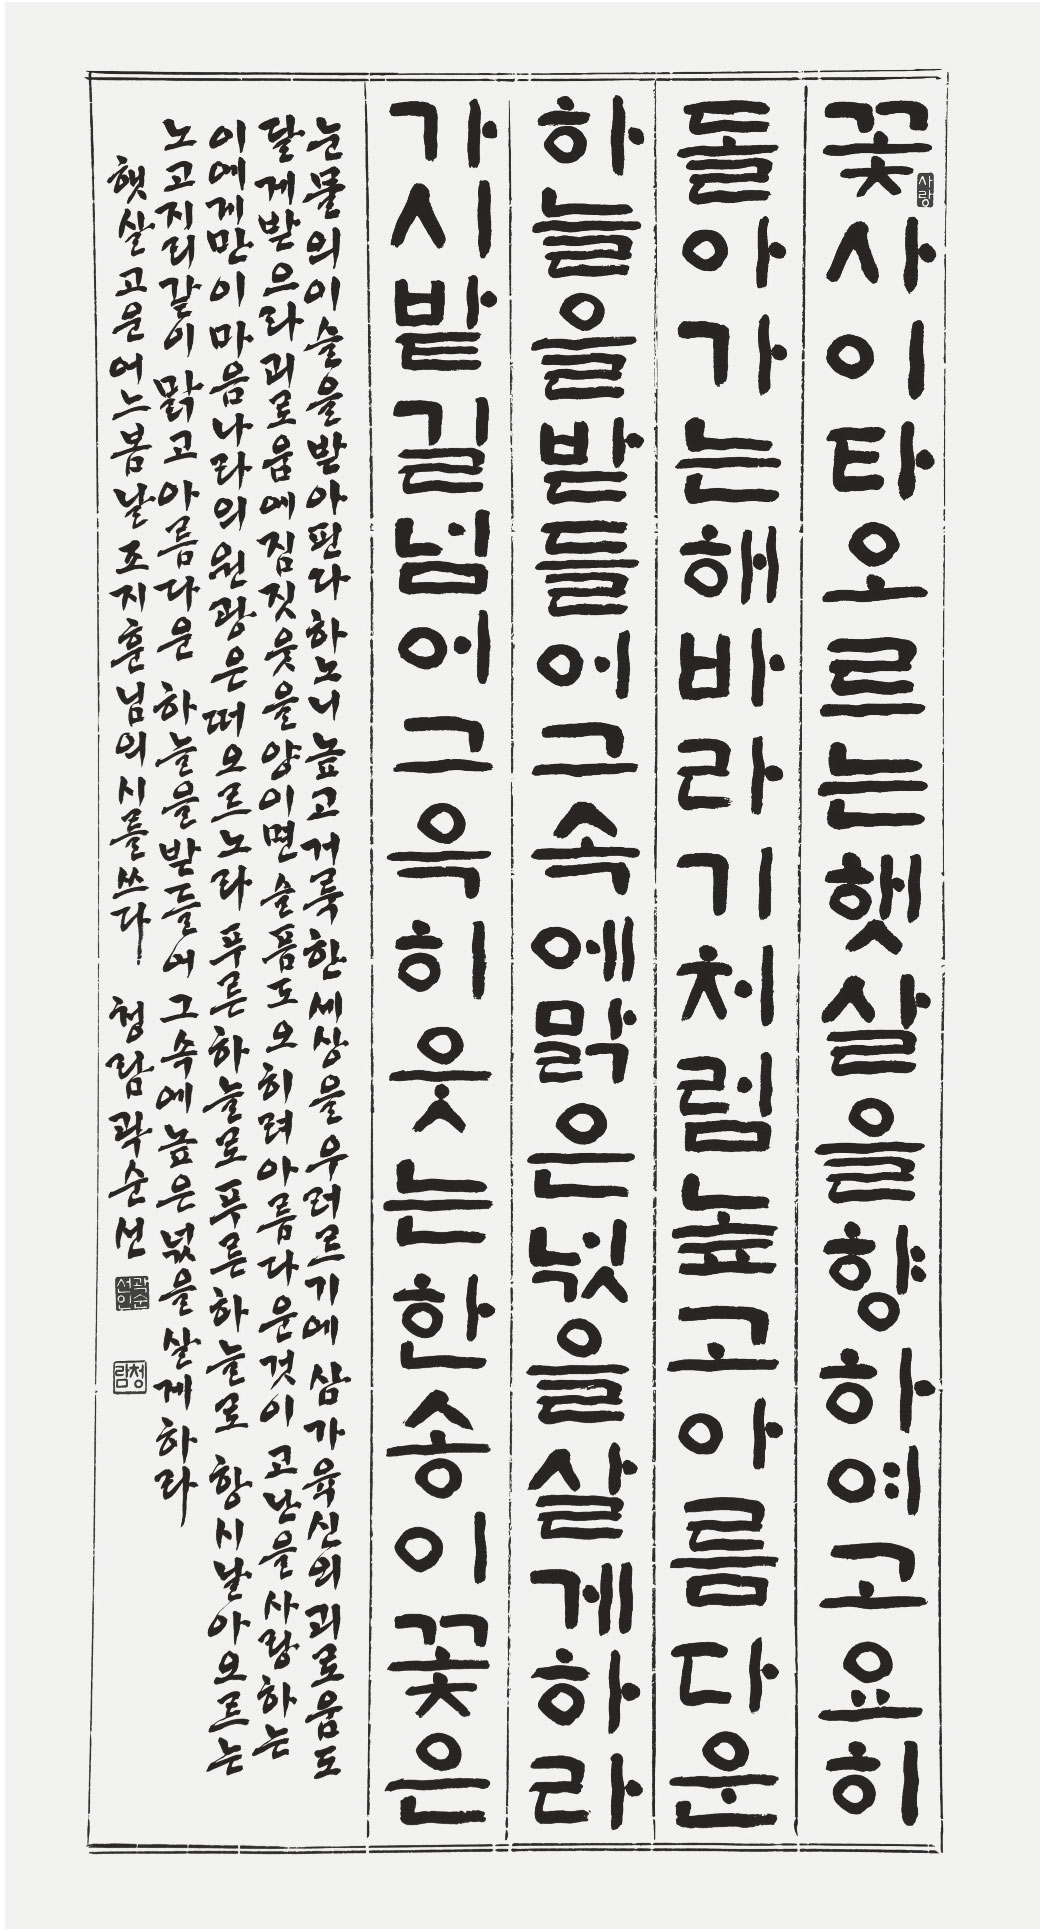 꽃사이타오르는햇살을향하여고요히
사랑
돌아가는해바라기처럼높고아름다운
하늘을받들어그속에맑은넋을살게하라
가시밭길넘어그윽히웃는한송이꽃은
눈물의이슬을받아핀다하노니높고거룩한세상을우러르기에삼가육신의괴로움도
달게받으라괴로움에짐짓웃을양이면슬픔도오히려아름다운것이고난을사랑하는
이에게만이마음나라의원광은떠오르노라푸른하늘로푸른하늘로항시날아오르는
노고지리같이맑고아름다운하늘을받들어그속에높은넋을살게하라
햇살고운어느봄날조지훈님의시를쓰다 청람곽순선
곽순선인
청람